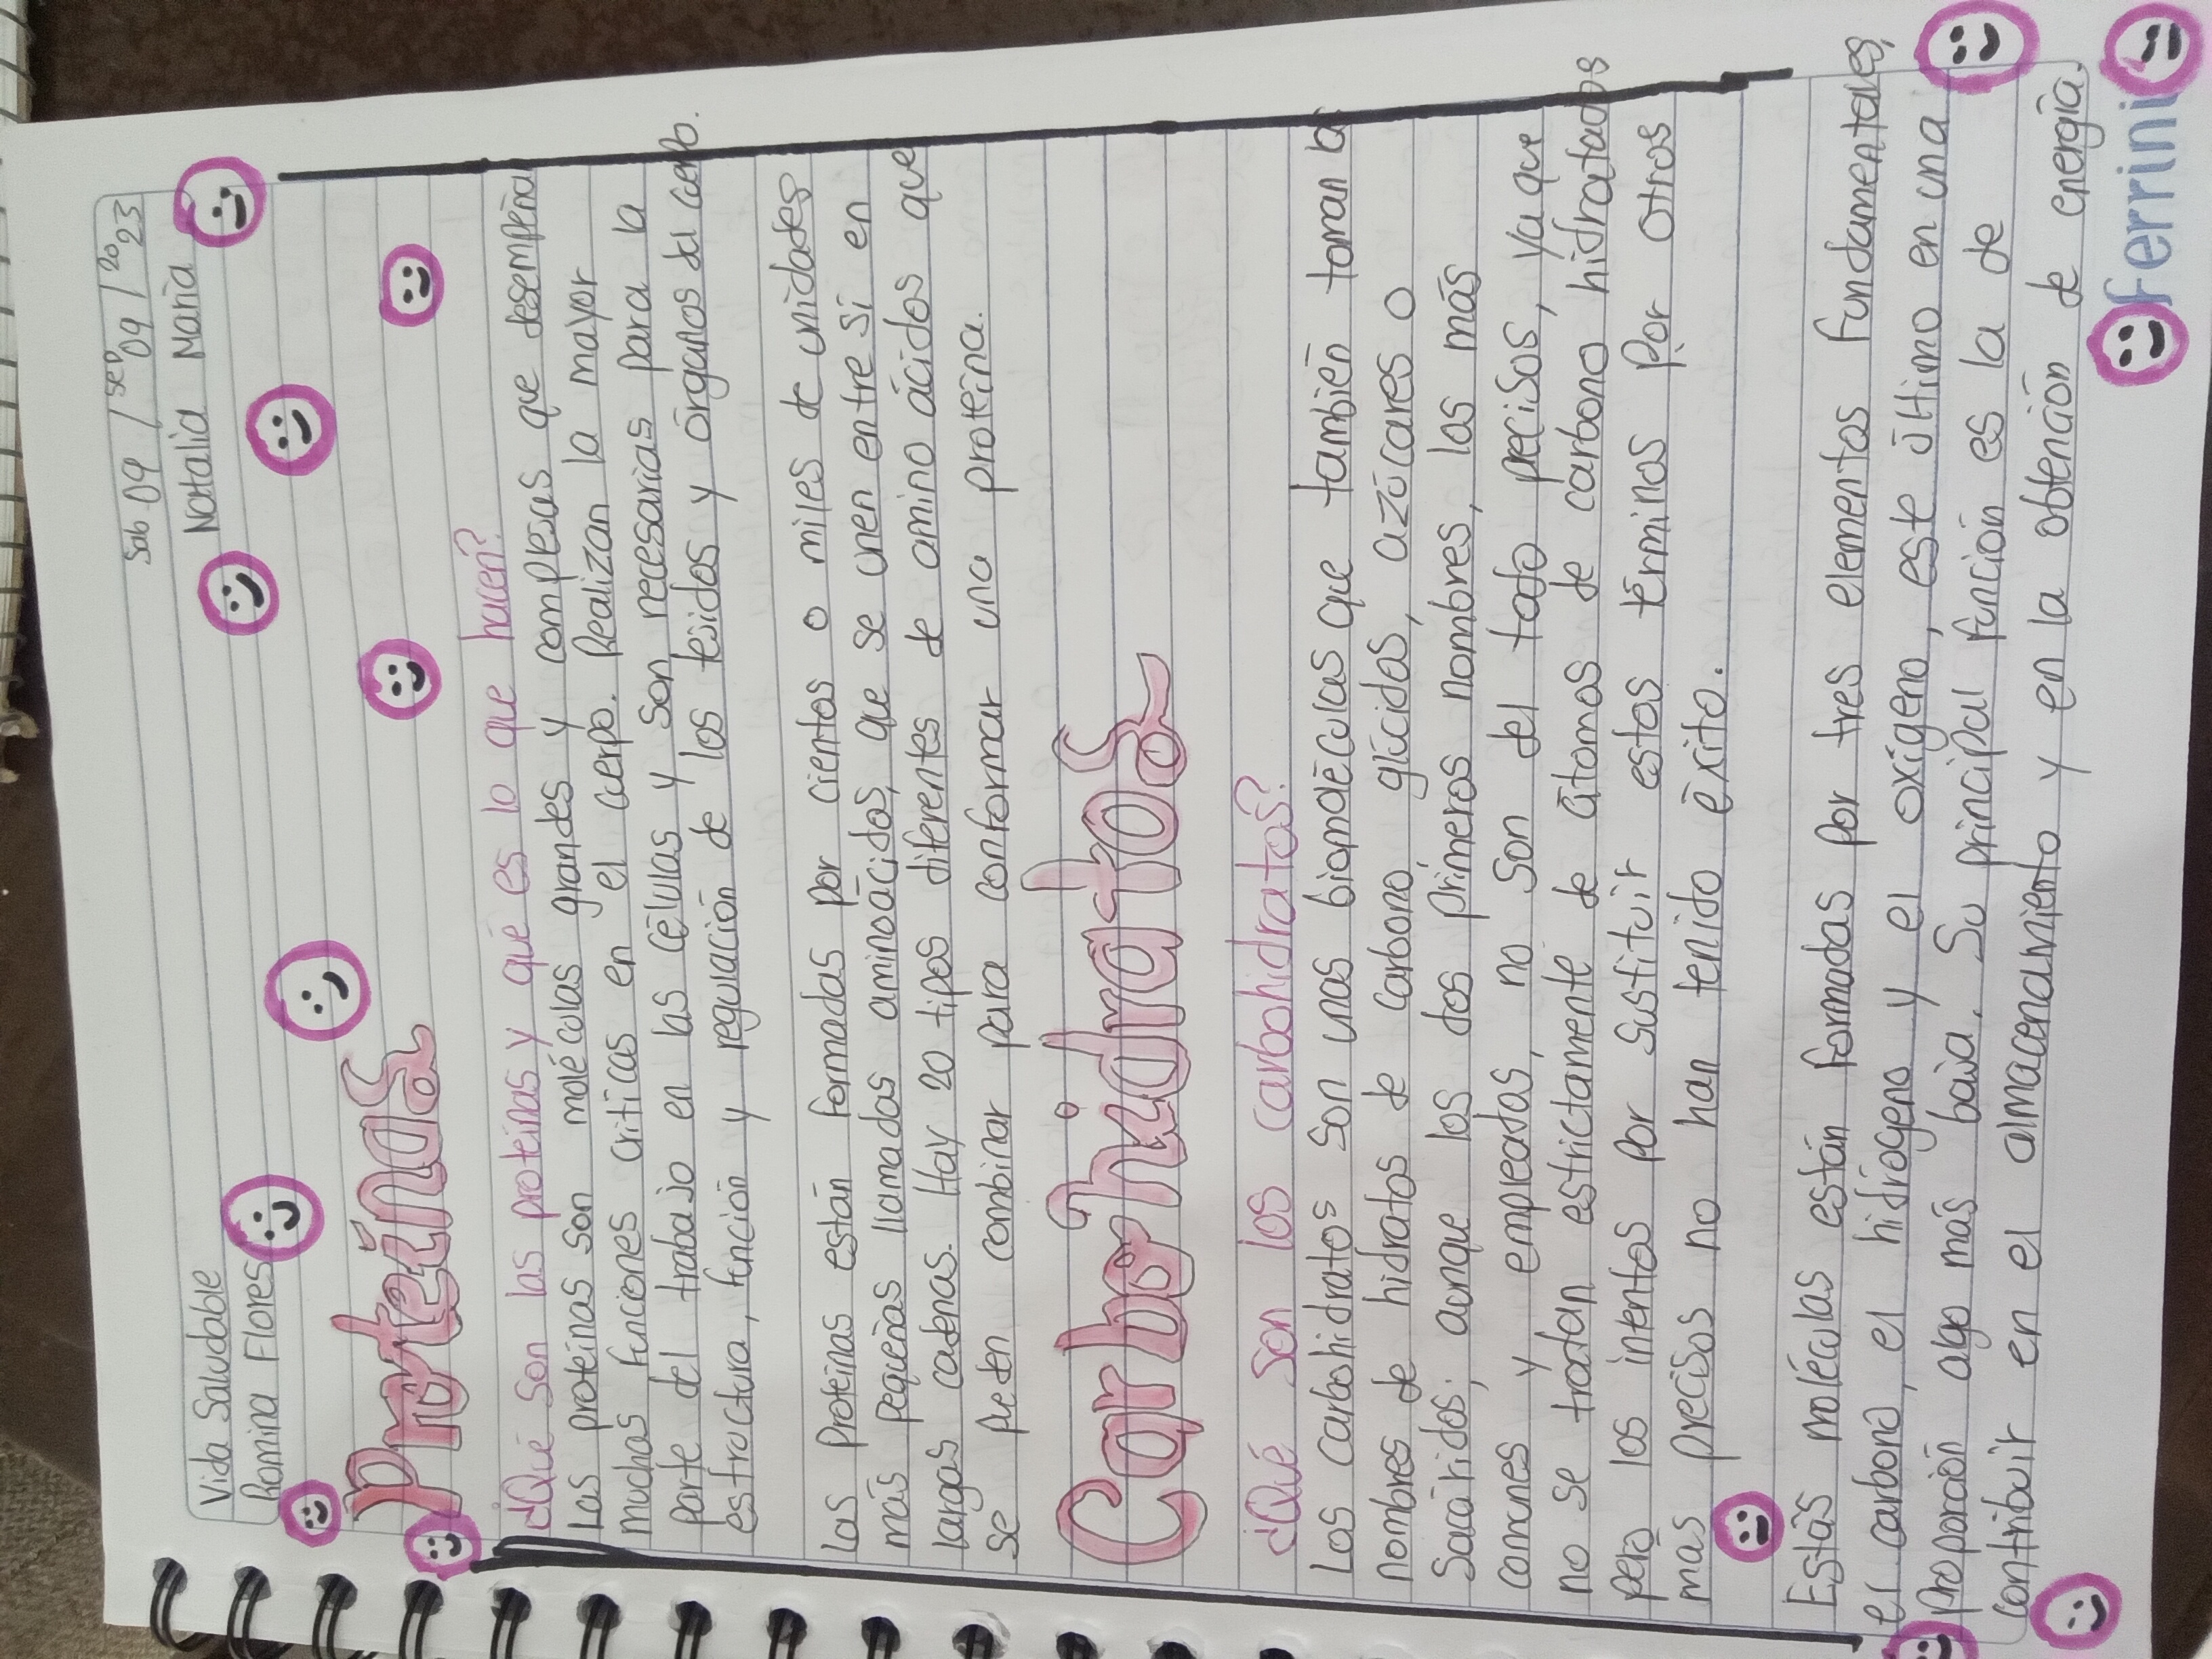 Sab 09 / sep 09 / 20 23
Vida Saludable
Natalia María
Romina Flores
Proteínas
¿Qué son las proteínas y qué es lo que hacen?
Las proteínas son moléculas grandes y complejas que desempeñan
muchas funciones críticas en el cuerpo. Realizan la mayor
parte del trabajo en las células y son necesarias para la
estructura, función y regulación de los tejidos y órganos del
Las proteínas están formadas por cientos o miles de unidades
más pequeñas llamadas aminoácidos, que se unen entre sí en
largas cadenas. Hay 20 tipos diferentes de amino ácidos que
se pueden combinar para conformar una proteína.
Carbohidratos
¿Qué son los carbohidratos?
Los carbohidratos son unas biomoléculas que también toman los
nombres de hidratos de carbono, glúcidos, azúcares o
Sacáridos; aunque los dos primeros nombres, los más
comunes y empleados, no son del todo precisos, ya que
no se tratan estrictamente de átomos de carbono hidratados
pero los intentos por sustituir estos términos por otros
mas precisos no han tenido éxito.
Estas moléculas están formadas por tres elementos fundamentales,
el carbono, el hidrógeno y el oxígeno, este último en una
proporción algo más baja. Su principal función es la de
contribuir en el almacenamiento y en la obtención de energía.
Ferrini